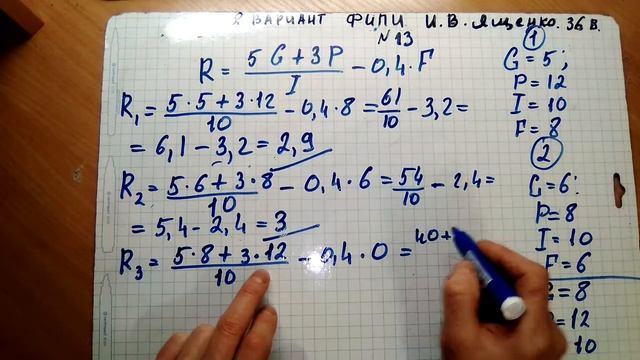 Я ВАРИАНТ ФИПИ И.В. Ященко. 36 В.
№ 13
R = (5G + 3P)/I − 0,4·F
R₁ = (5·5 + 3·12)/10 − 0,4·8 = 61/10 − 3,2 =
= 6,1 − 3,2 = 2,9
R₂ = (5·6 + 3·8)/10 − 0,4·6 = 54/10 − 2,4 =
= 5,4 − 2,4 = 3
R₃ = (5·8 + 3·12)/10 − 0,4·0 = 40+
1
G = 5;
P = 12
I = 10
F = 8
2
G = 6:
P = 8
I = 10
F = 6
= 8
= 12
10